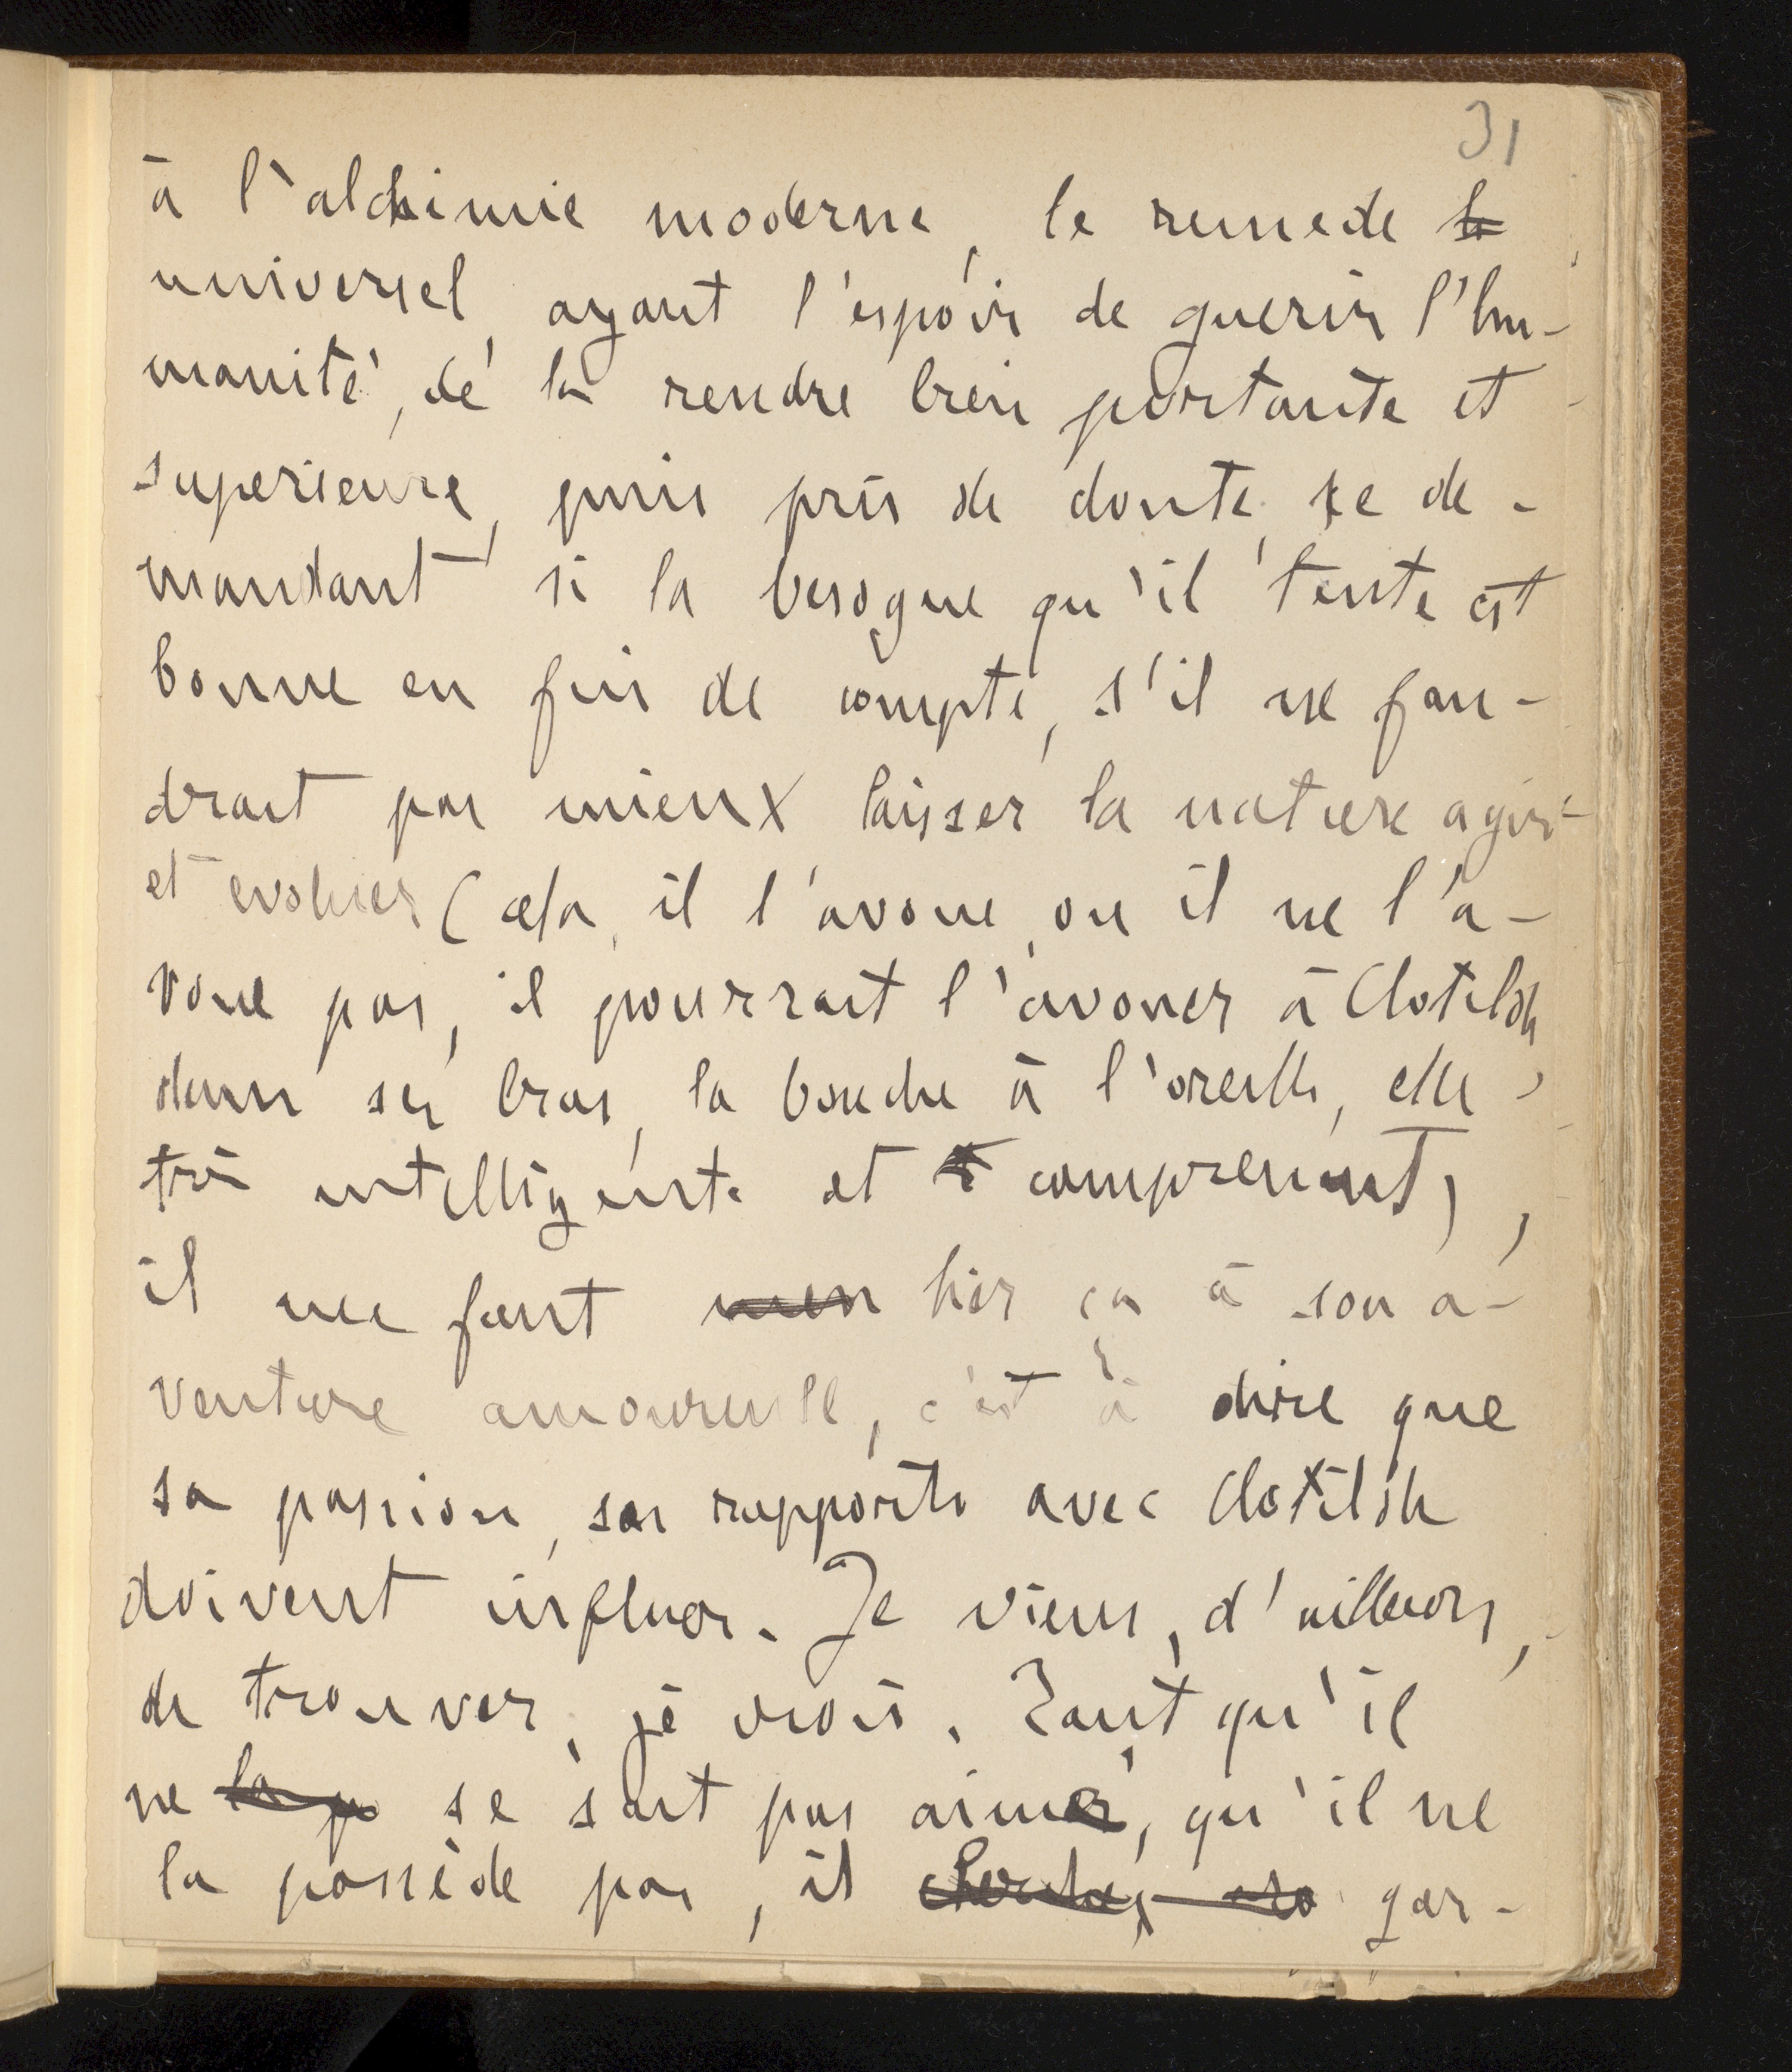 31
à l'alchimie moderne, le remede la
universel, ayant l'espoir de guerir l'hu-
manité, de la rendre bien portante et
superieure, puis pris de doute, se de-
mandant si la besogne qu'il tente est
bonne en fin de compte, s'il ne fau-
drait pas mieux laisser la nature agir
et evoluer (cela, il l'avoue, ou il ne l'a-
voue pas, il pourrait l'avouer à Clotilde
dans ses bras, la bouche à l'oreille, elle
très intelligente et comprenant),
il me faut lier ça à son a-
venture amoureuse, c'est à dire que
sa passion, ses rapports avec Clotilde
doivent influer. Je viens, d'ailleurs,
de trouver, je crois. Tant qu'il
ne la p se sait pas aimé, qu'il ne
la possède pas, il cherche, gar-